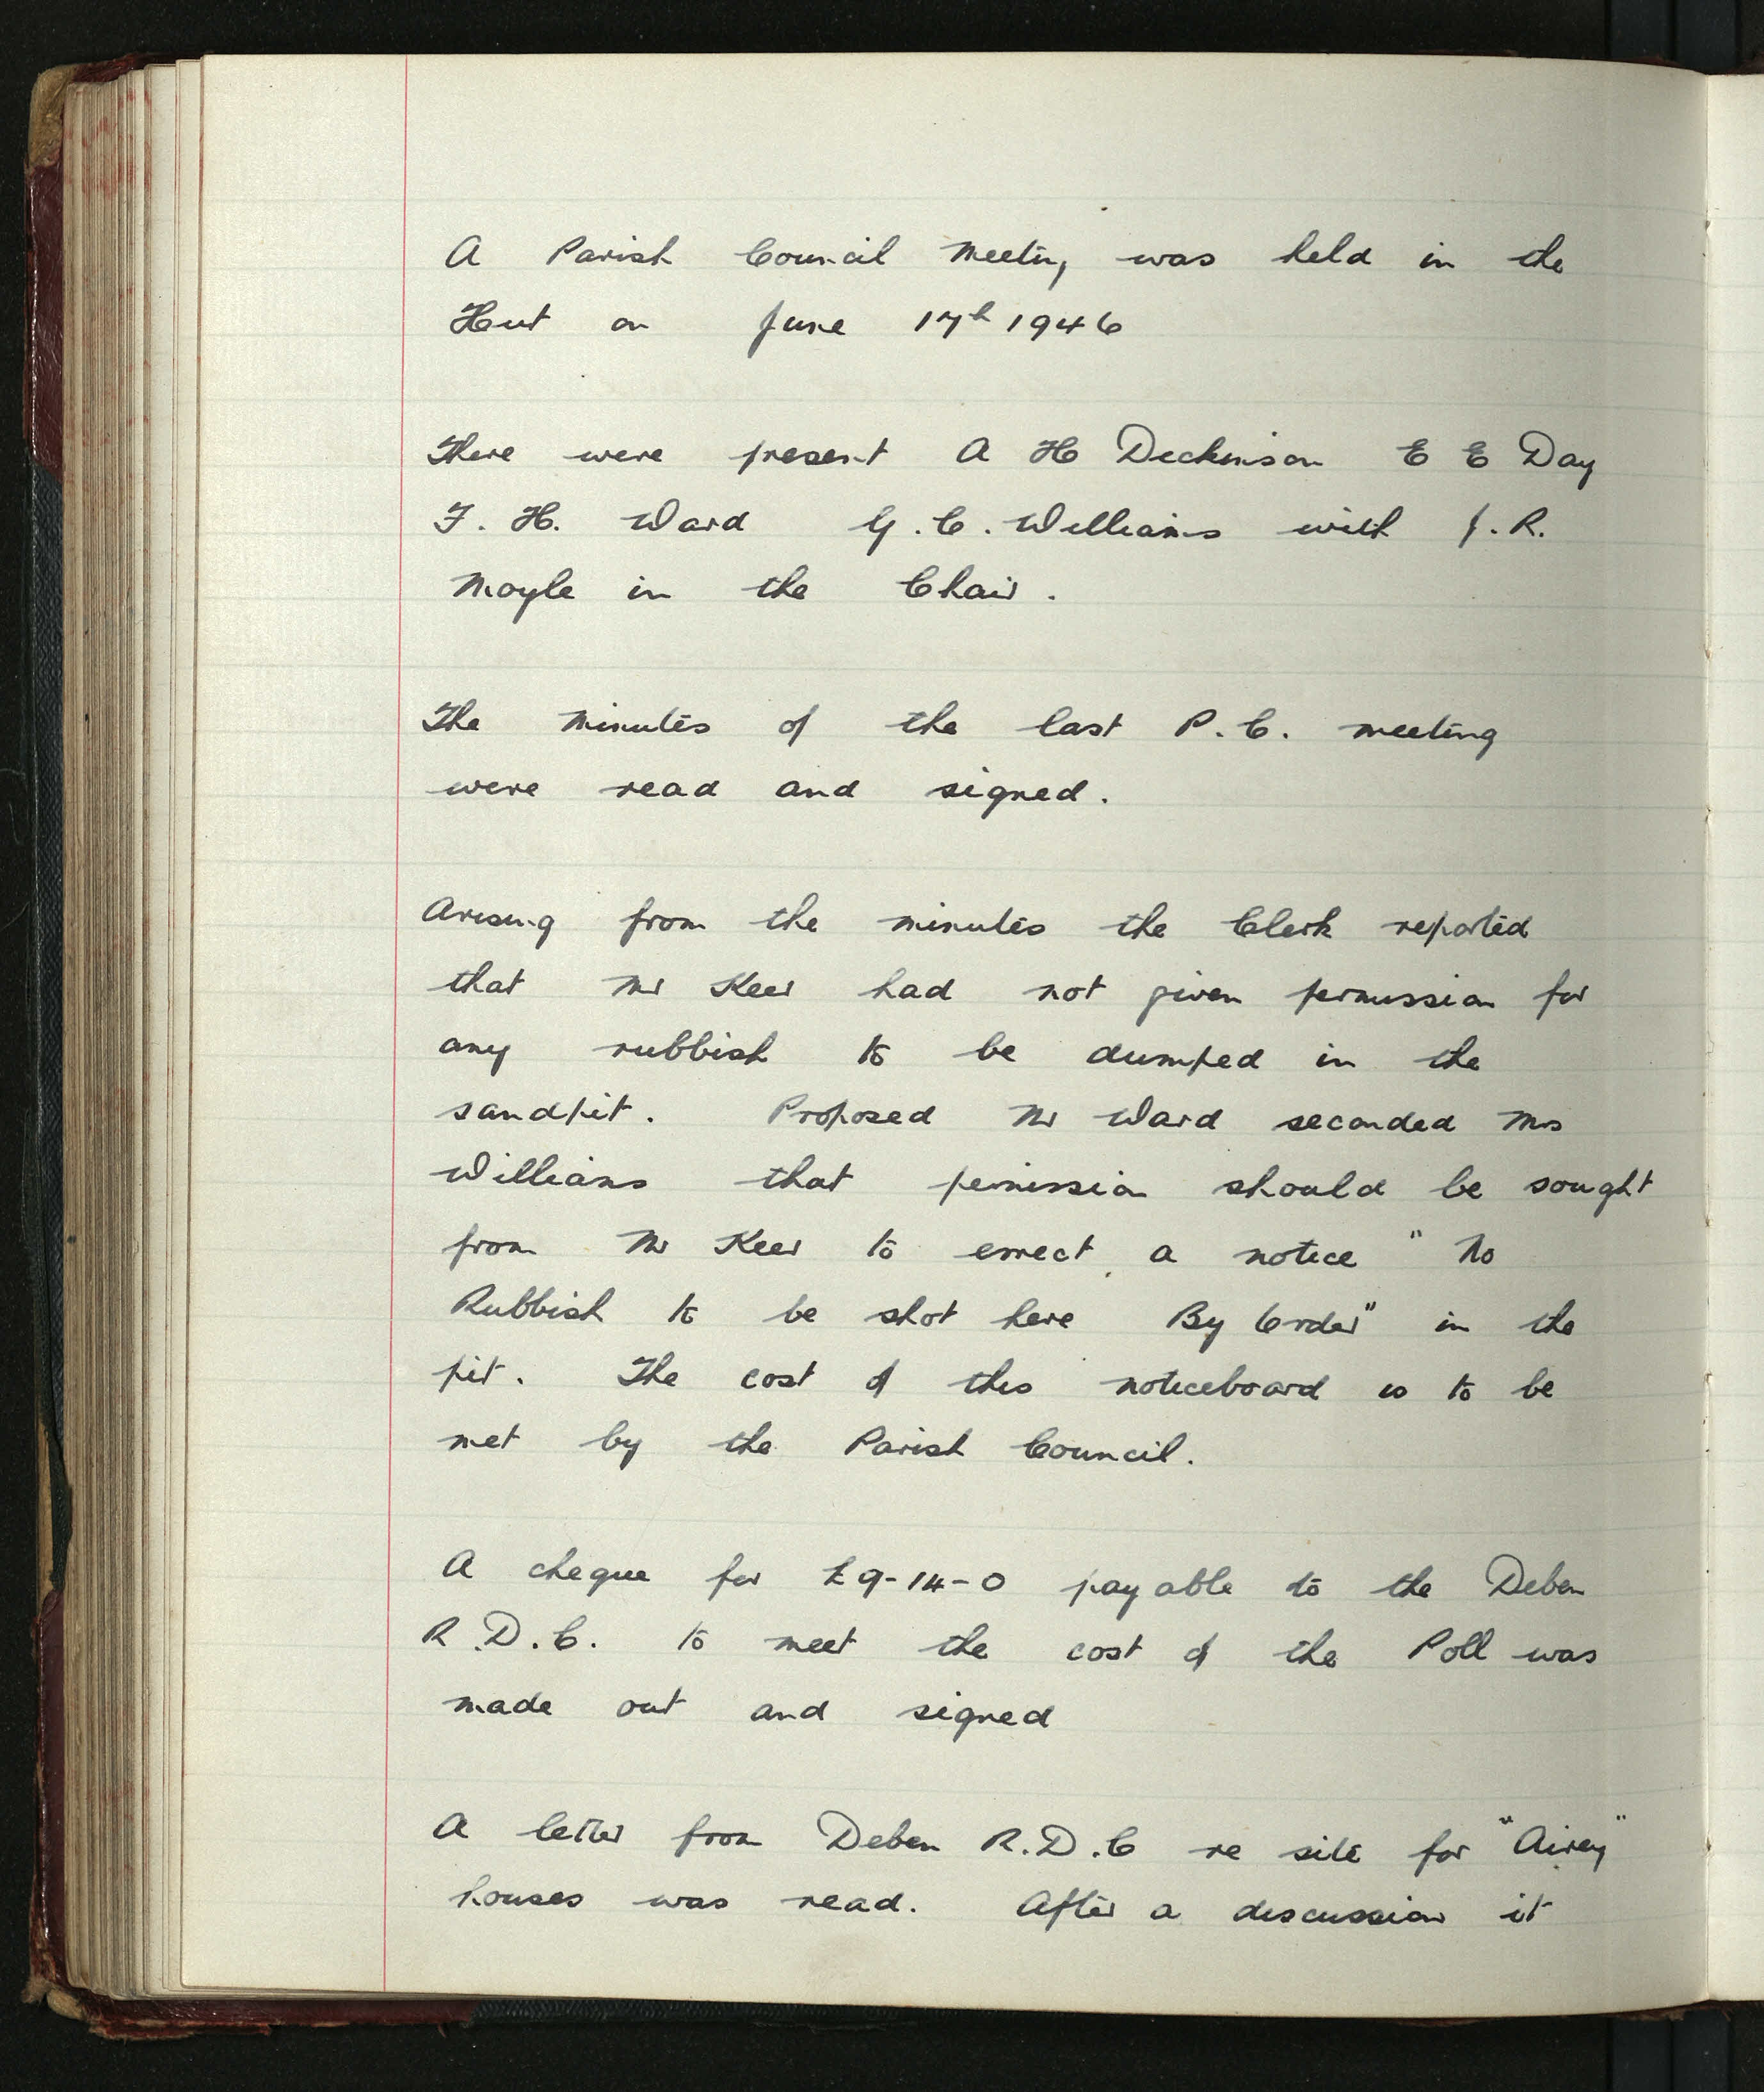 A Parish Council Meeting was held in the
Hut on June 17th 1946
There were present A H Dickinson E E Day
F. H. Ward G. C. Williams with J. R.
Moyle in the Chair.
The Minutes of the last P.C. meeting
were read and signed.
Arising from the minutes the Clerk reported
that Mr Keer had not given permission for
any rubbish to be dumped in the
sandpit. Proposed Mr Ward seconded Mrs
Williams that permission should be sought
from Mr Keer to errect a notice "No
Rubbish to be shot here By Order" in the
pit. The cost of this noticeboard is to be
met by the Parish Council.
A cheque for £9-14-0 payable to the Deben
R.D.C. to meet the cost of the Poll was
made out and signed
A letter from Deben R.D.C re site for "Airey"
houses was read. After a discussion it